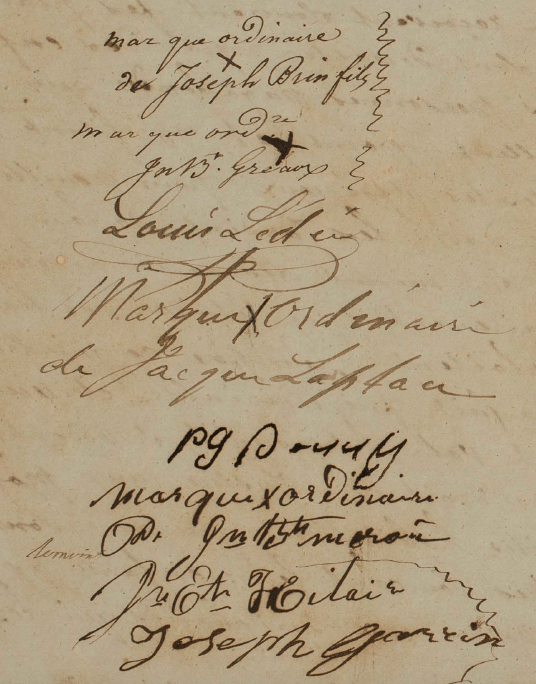 marque ordinaire
de Joseph Brin fils
marque ordre
Jn Bt. Greaux
Louis Ledé
Marque X Ordinaire
de Jacque Laplace
pg D
marque x ordinaire
De Jn Bte
temoin
Jn Et Hilair
Joseph